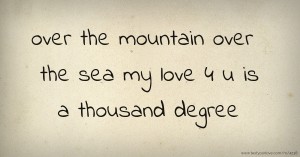 over the mountain over
the sea my love 4 u is
a thousand degree